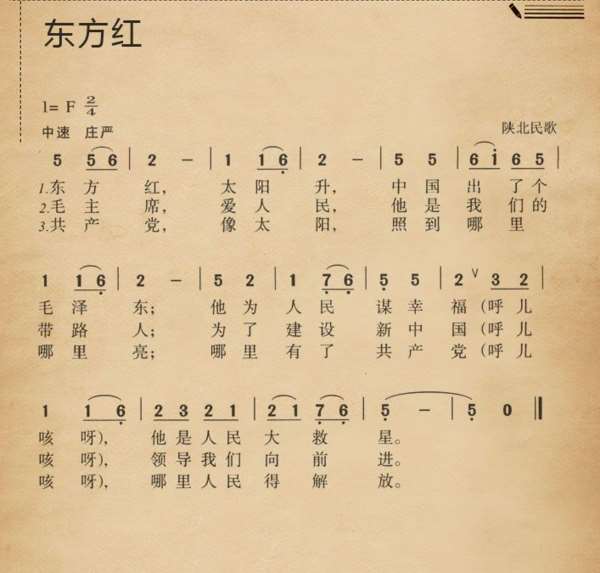 东方红
1= F 2/4
中速 庄严 陕北民歌
5 56 | 2 – | 1 16 | 2 – | 5 5 | 6i 65 |
1.东 方 红， 太 阳 升， 中 国 出 了 个
2.毛 主 席， 爱 人 民， 他 是 我 们 的
3.共 产 党， 像 太 阳， 照 到 哪 里
1 16 | 2 – | 5 2 | 1 76 | 5 5 | 2 ∨ 32 |
毛 泽 东； 他 为 人 民 谋 幸 福 （呼 儿
带 路 人； 为 了 建 设 新 中 国 （呼 儿
哪 里 亮； 哪 里 有 了 共 产 党 （呼 儿
1 16 | 23 21 | 21 76 | 5 – | 5 0 ‖
咳 呀）， 他 是 人 民 大 救 星。
咳 呀）， 领 导 我 们 向 前 进。
咳 呀）， 哪 里 人 民 得 解 放。